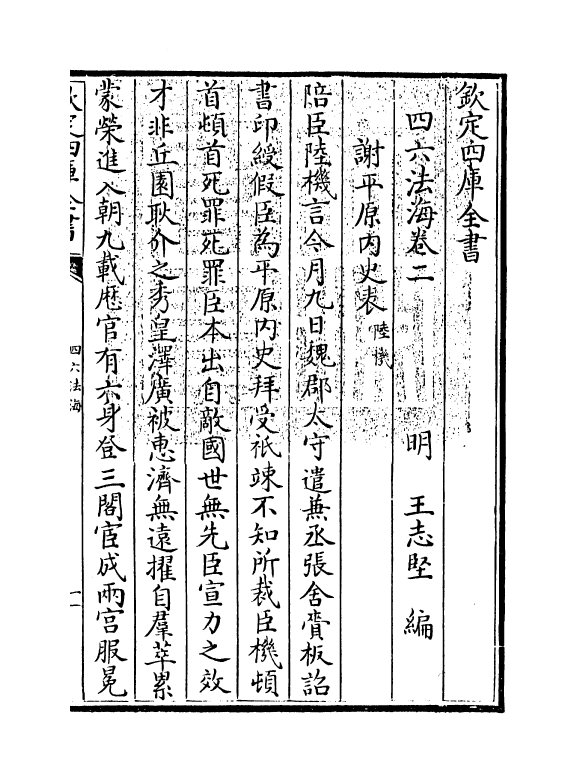 欽定四庫全書
四六法海卷二　　　　明　王志堅　編
謝平原内史表 陸機
陪臣陸機言今月九日魏郡太守遣兼丞張含賫板詔
書印綬假臣為平原内史拜受祇竦不知所裁臣機頓
首頓首死罪死罪臣本出自敵國世無先臣宣力之效
才非丘園耿介之秀皇澤廣被惠濟無遠擢自羣萃累
蒙榮進入朝九載歴官有六身登三閣宦成兩宫服冕
四六法海